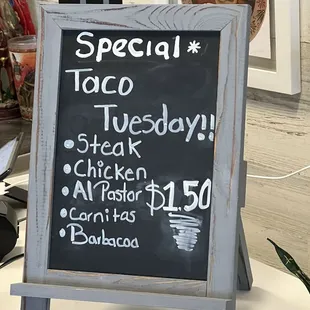 Special *
Taco
Tuesday!!
• Steak
• Chicken
• Al Pastor $1.50
• Carnitas
• Barbacoa